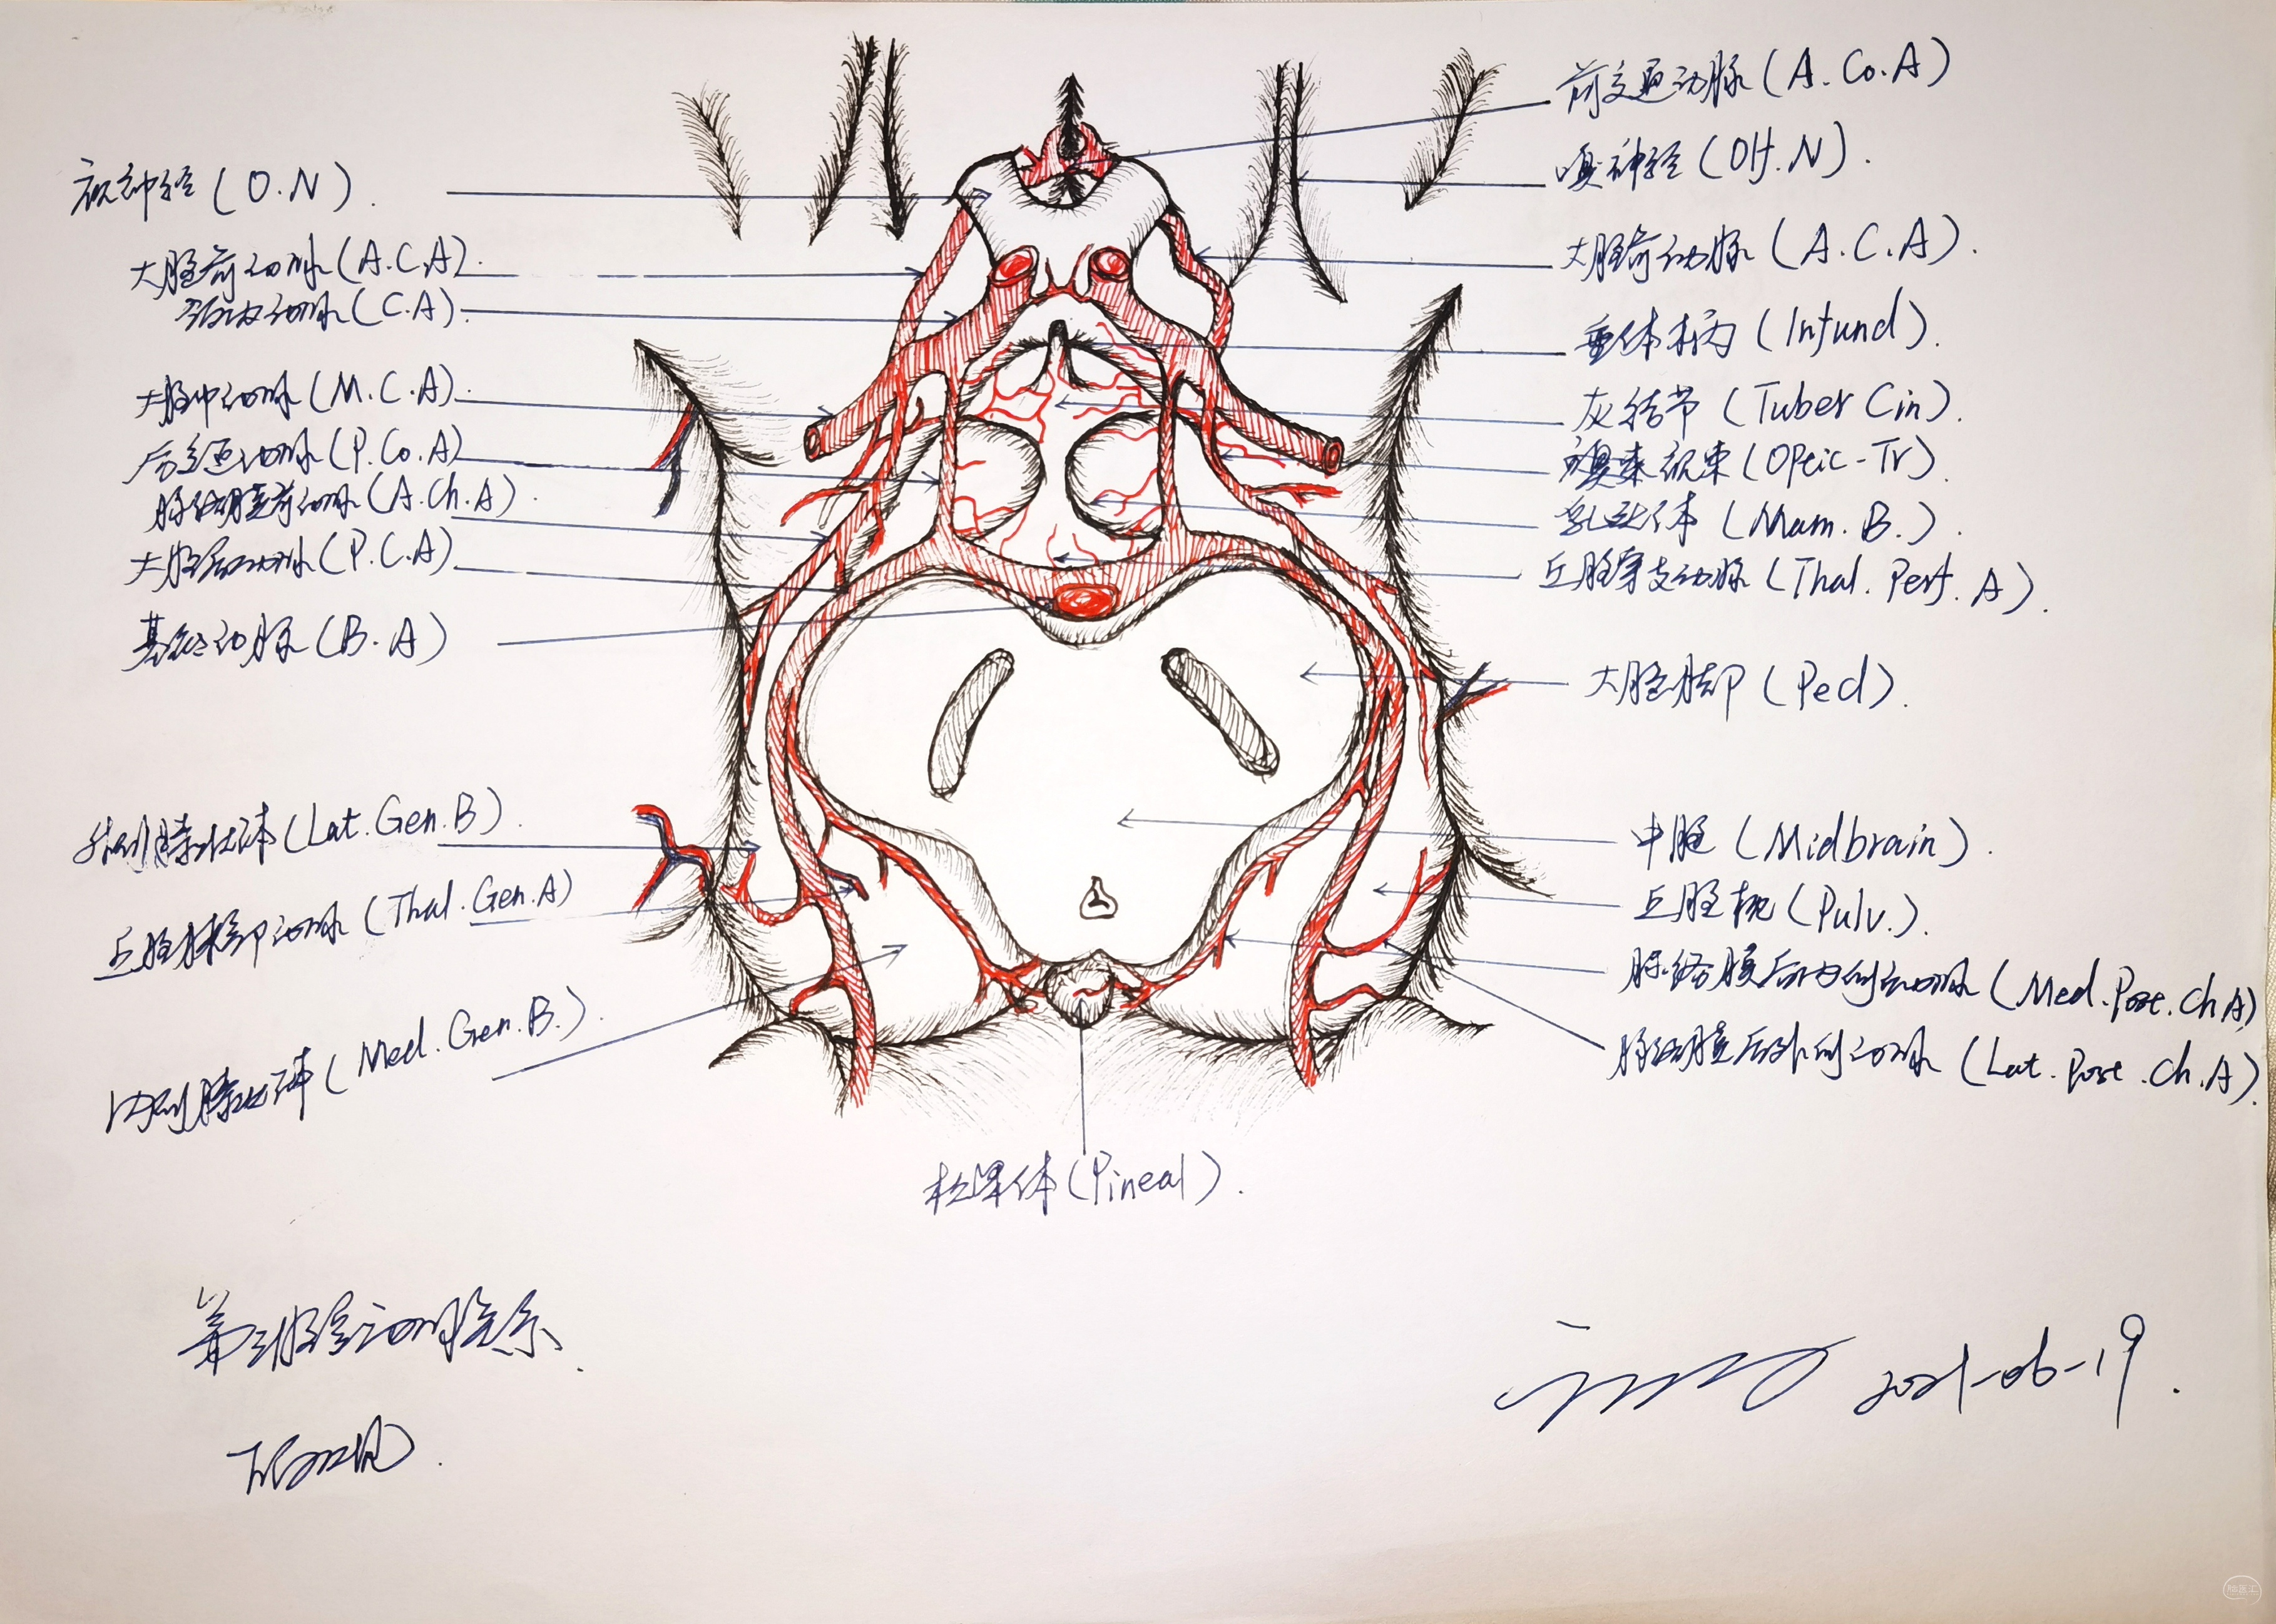 视神经(O.N).
大脑前动脉(A.C.A).
颈内动脉(C.A).
大脑中动脉(M.C.A).
后交通动脉(P.Co.A)
脉络膜前动脉(A.Ch.A).
大脑后动脉(P.C.A)
基底动脉(B.A)
外侧膝状体(Lat.Gen.B).
丘脑膝部动脉(Thal.Gen.A)
内侧膝状体(Med.Gen.B.).
前交通动脉(A.Co.A)
嗅神经(Olf.N).
大脑前动脉(A.C.A).
垂体柄(Infund).
灰结节(Tuber Cin).
视束(Optic-Tr).
乳头体(Mam.B.).
丘脑穿支动脉(Thal.Perf.A).
大脑脚(Ped).
中脑(Midbrain).
丘脑枕(Pulv.).
脉络膜后内侧动脉(Med.Post.Ch.A)
脉络膜后外侧动脉(Lat.Post.Ch.A).
松果体(Pineal).
第三脑室动脉关系.
2021-06-19.